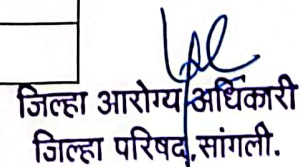 जिल्हा आरोग्य अधिकारी
जिल्हा परिषद, सांगली.